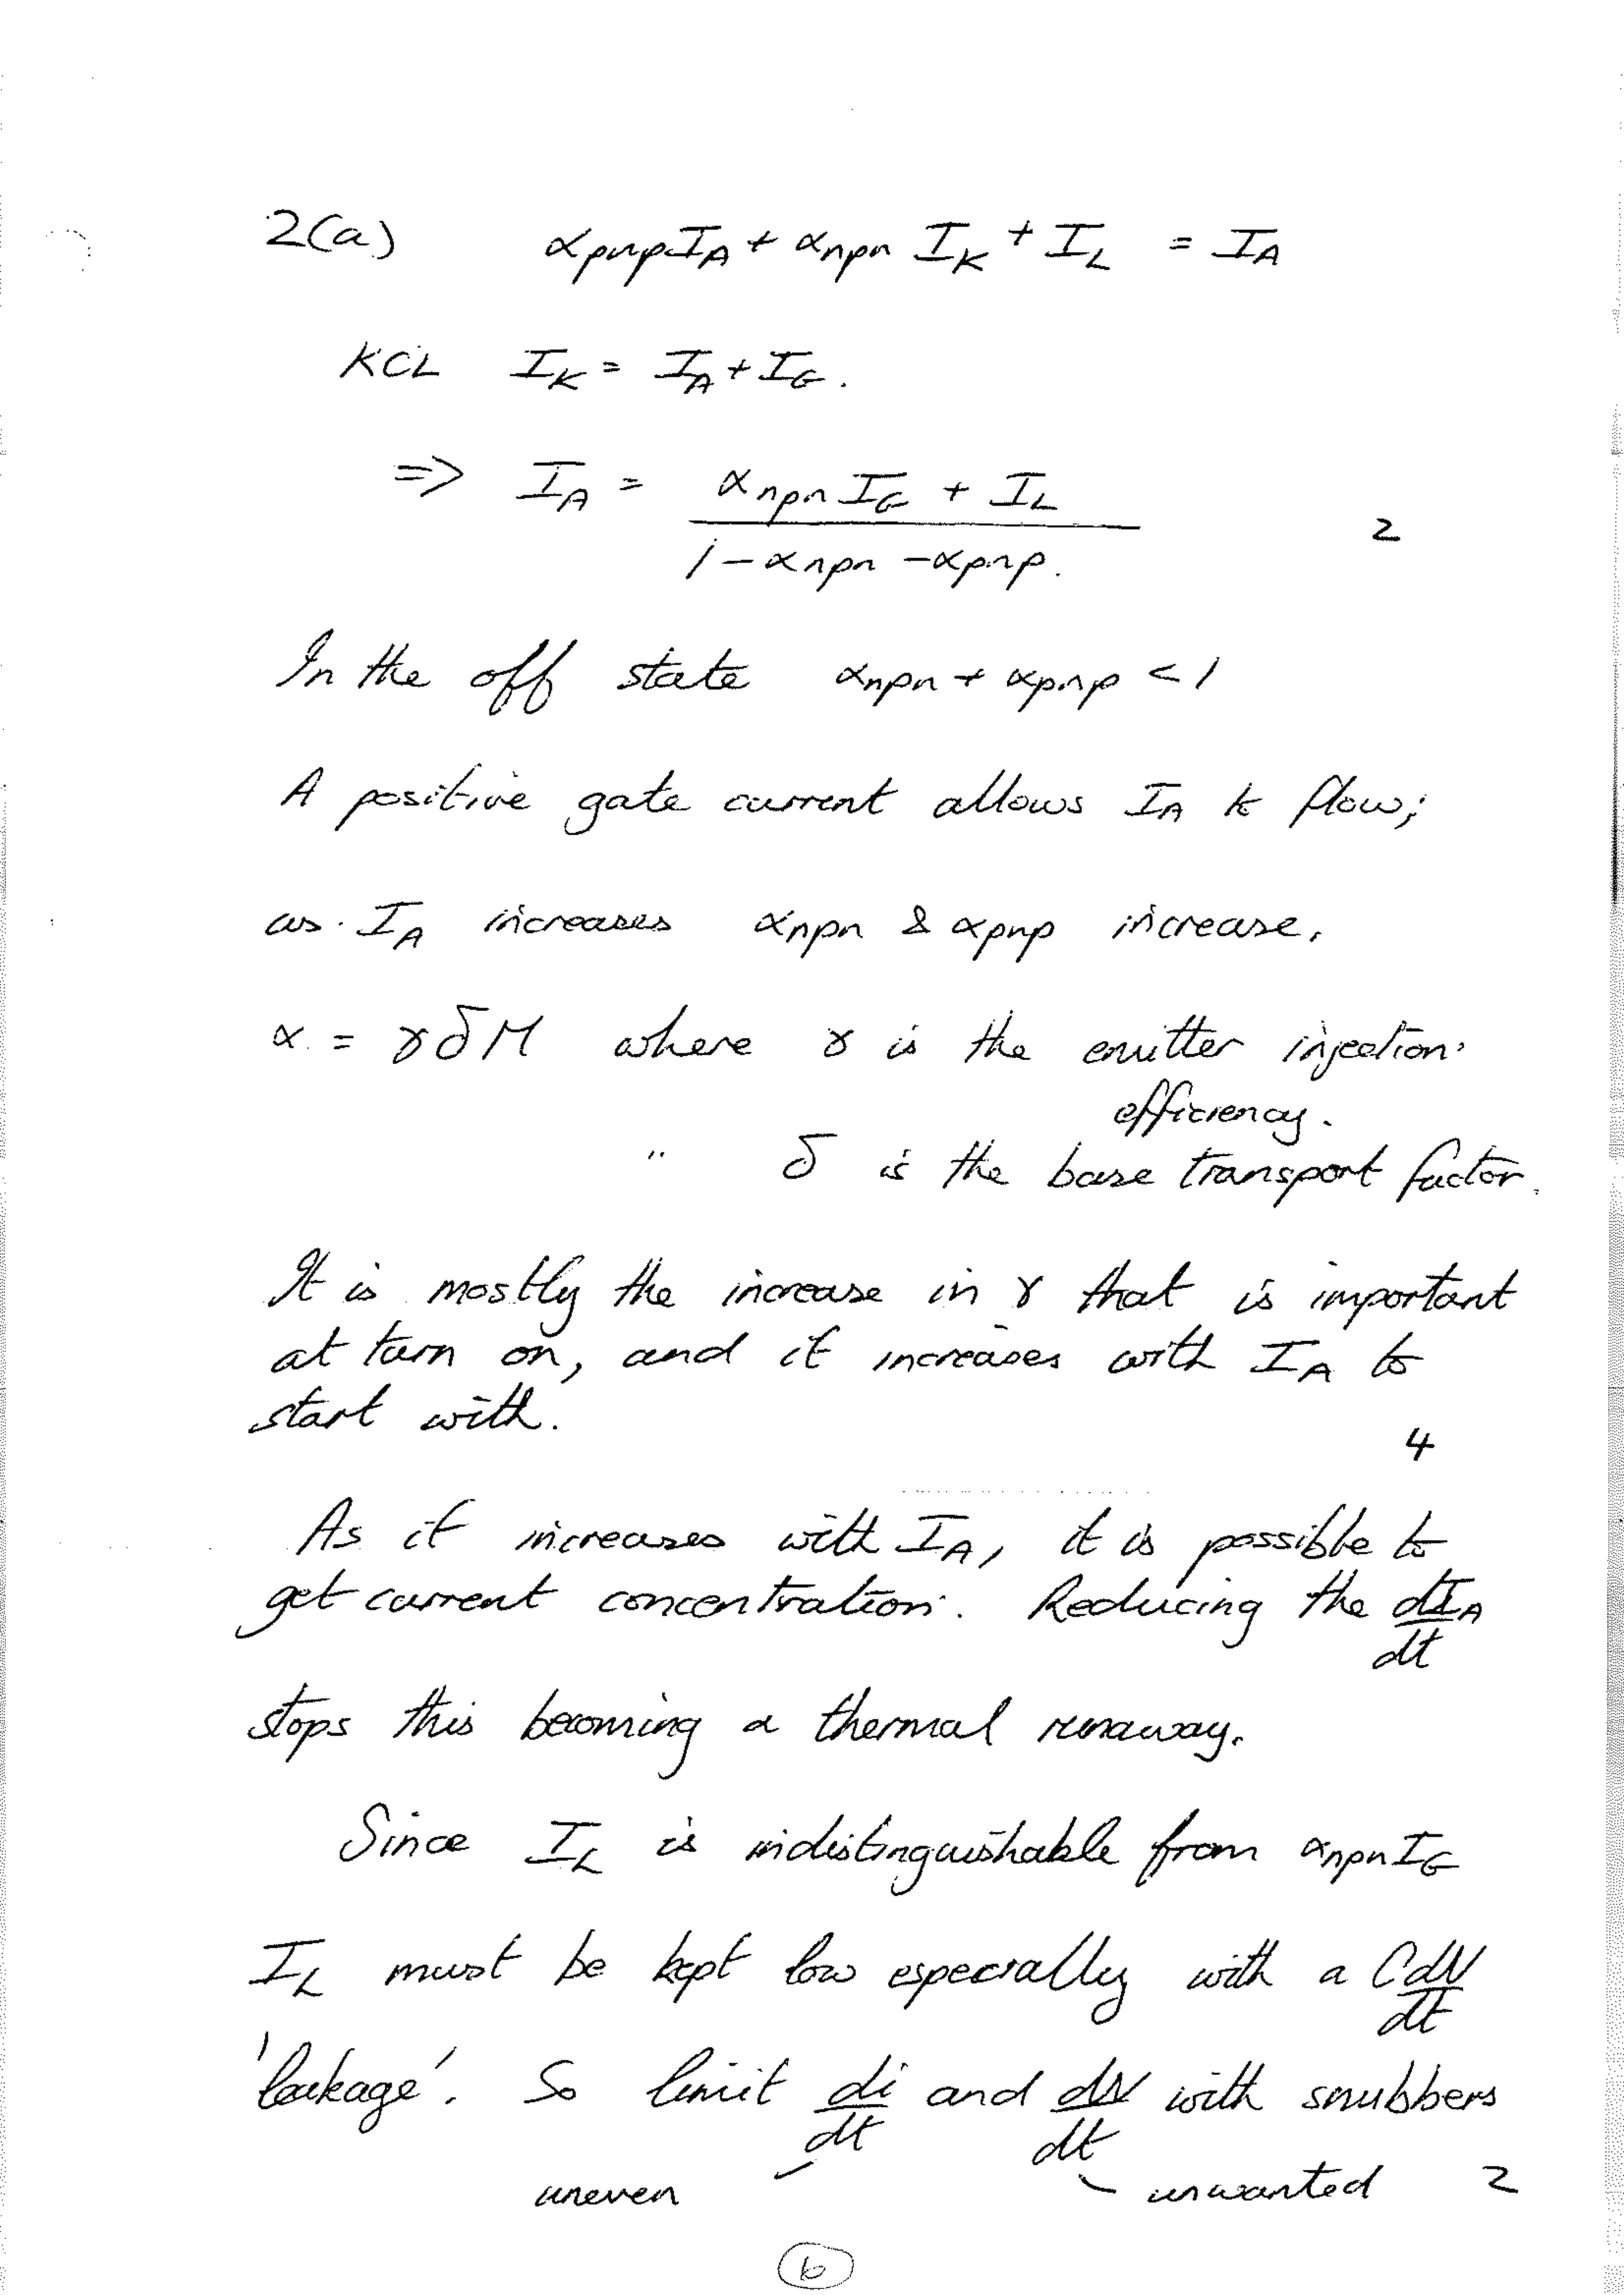 2(a) αpnp I_A + αnpn I_K + I_L = I_A
KCL I_K = I_A + I_G.
=> I_A = (αnpn I_G + I_L) / (1 - αnpn - αpnp). 2
In the off state αnpn + αpnp < 1
A positive gate current allows I_A to flow;
as I_A increases αnpn & αpnp increase.
α = γδM where γ is the emitter injection
efficiency.
" δ is the base transport factor.
It is mostly the increase in γ that is important
at turn on, and it increases with I_A to
start with.
4
As it increases with I_A, it is possible to
get current concentration. Reducing the dI_A/dt
stops this becoming a thermal runaway.
Since I_L is indistinguishable from αnpn I_G
I_L must be kept low especially with a C dV/dt
'leakage'. So limit di/dt and dV/dt with snubbers
uneven unwanted 2
6